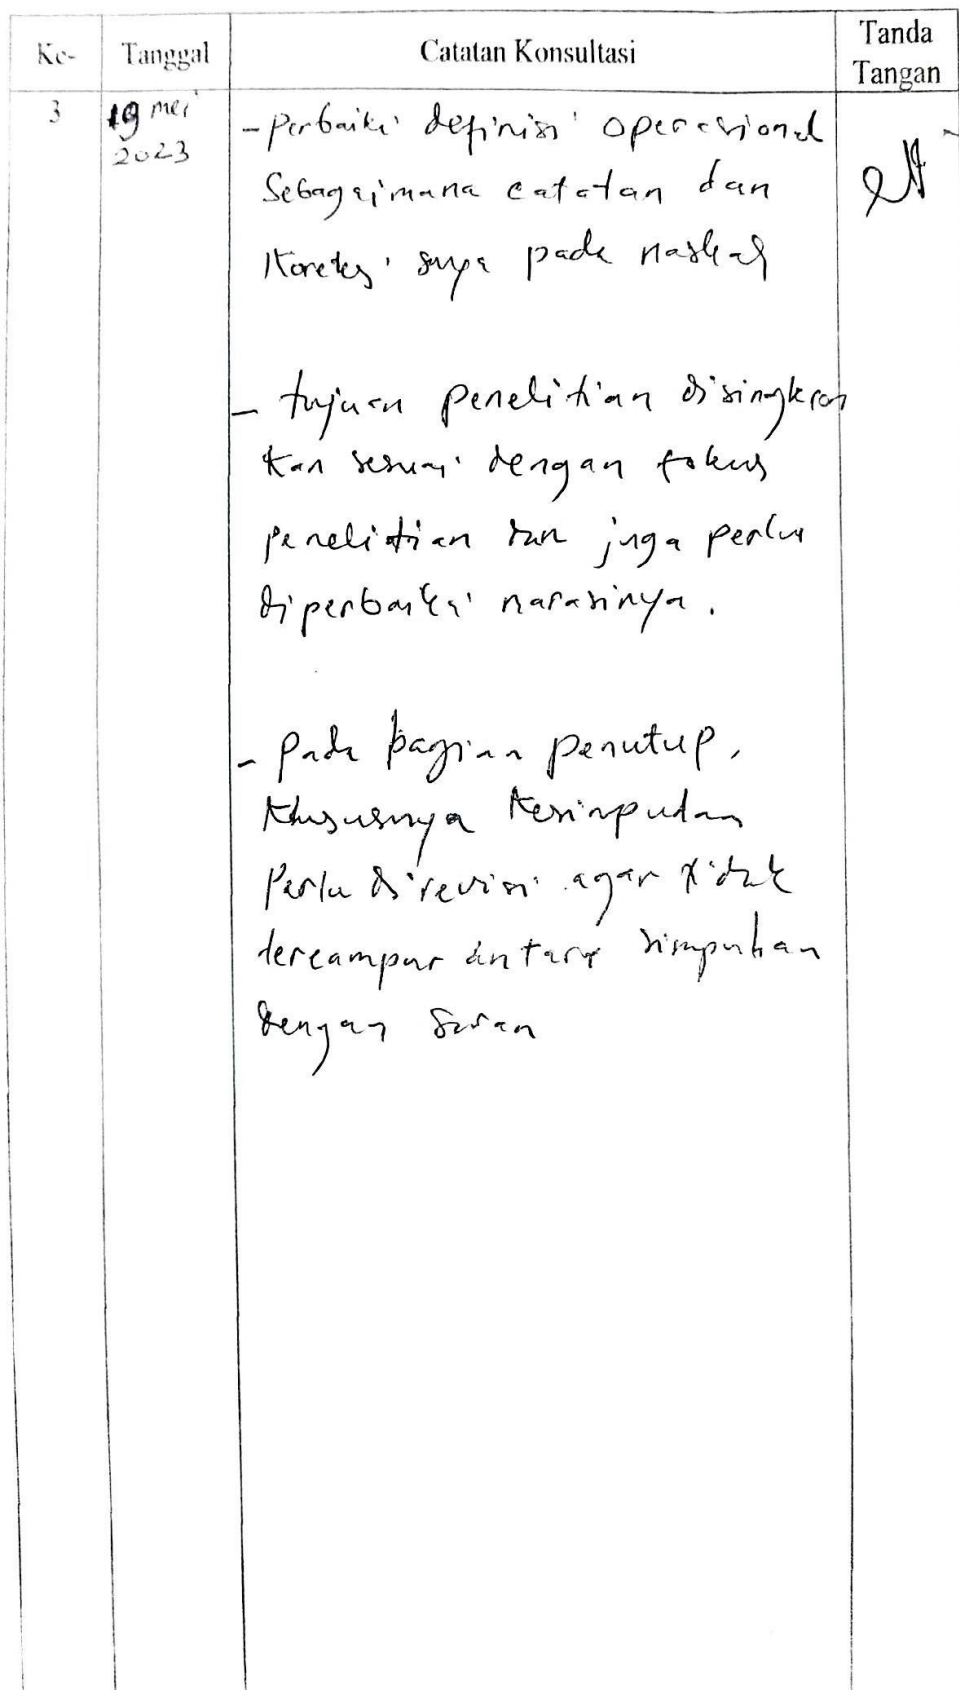 Ke- Tanggal Catatan Konsultasi Tanda Tangan
3 19 mei 2023
- Perbaiki definisi operasional
sebagaimana catatan dan
koreksi saya pada naskah
- tujuan penelitian disingkron
kan sesuai dengan fokus
penelitian dan juga perlu
diperbaiki narasinya.
- pada bagian penutup,
khususnya kesimpulan
perlu direvisi agar tidak
tercampur antara simpulan
dengan saran